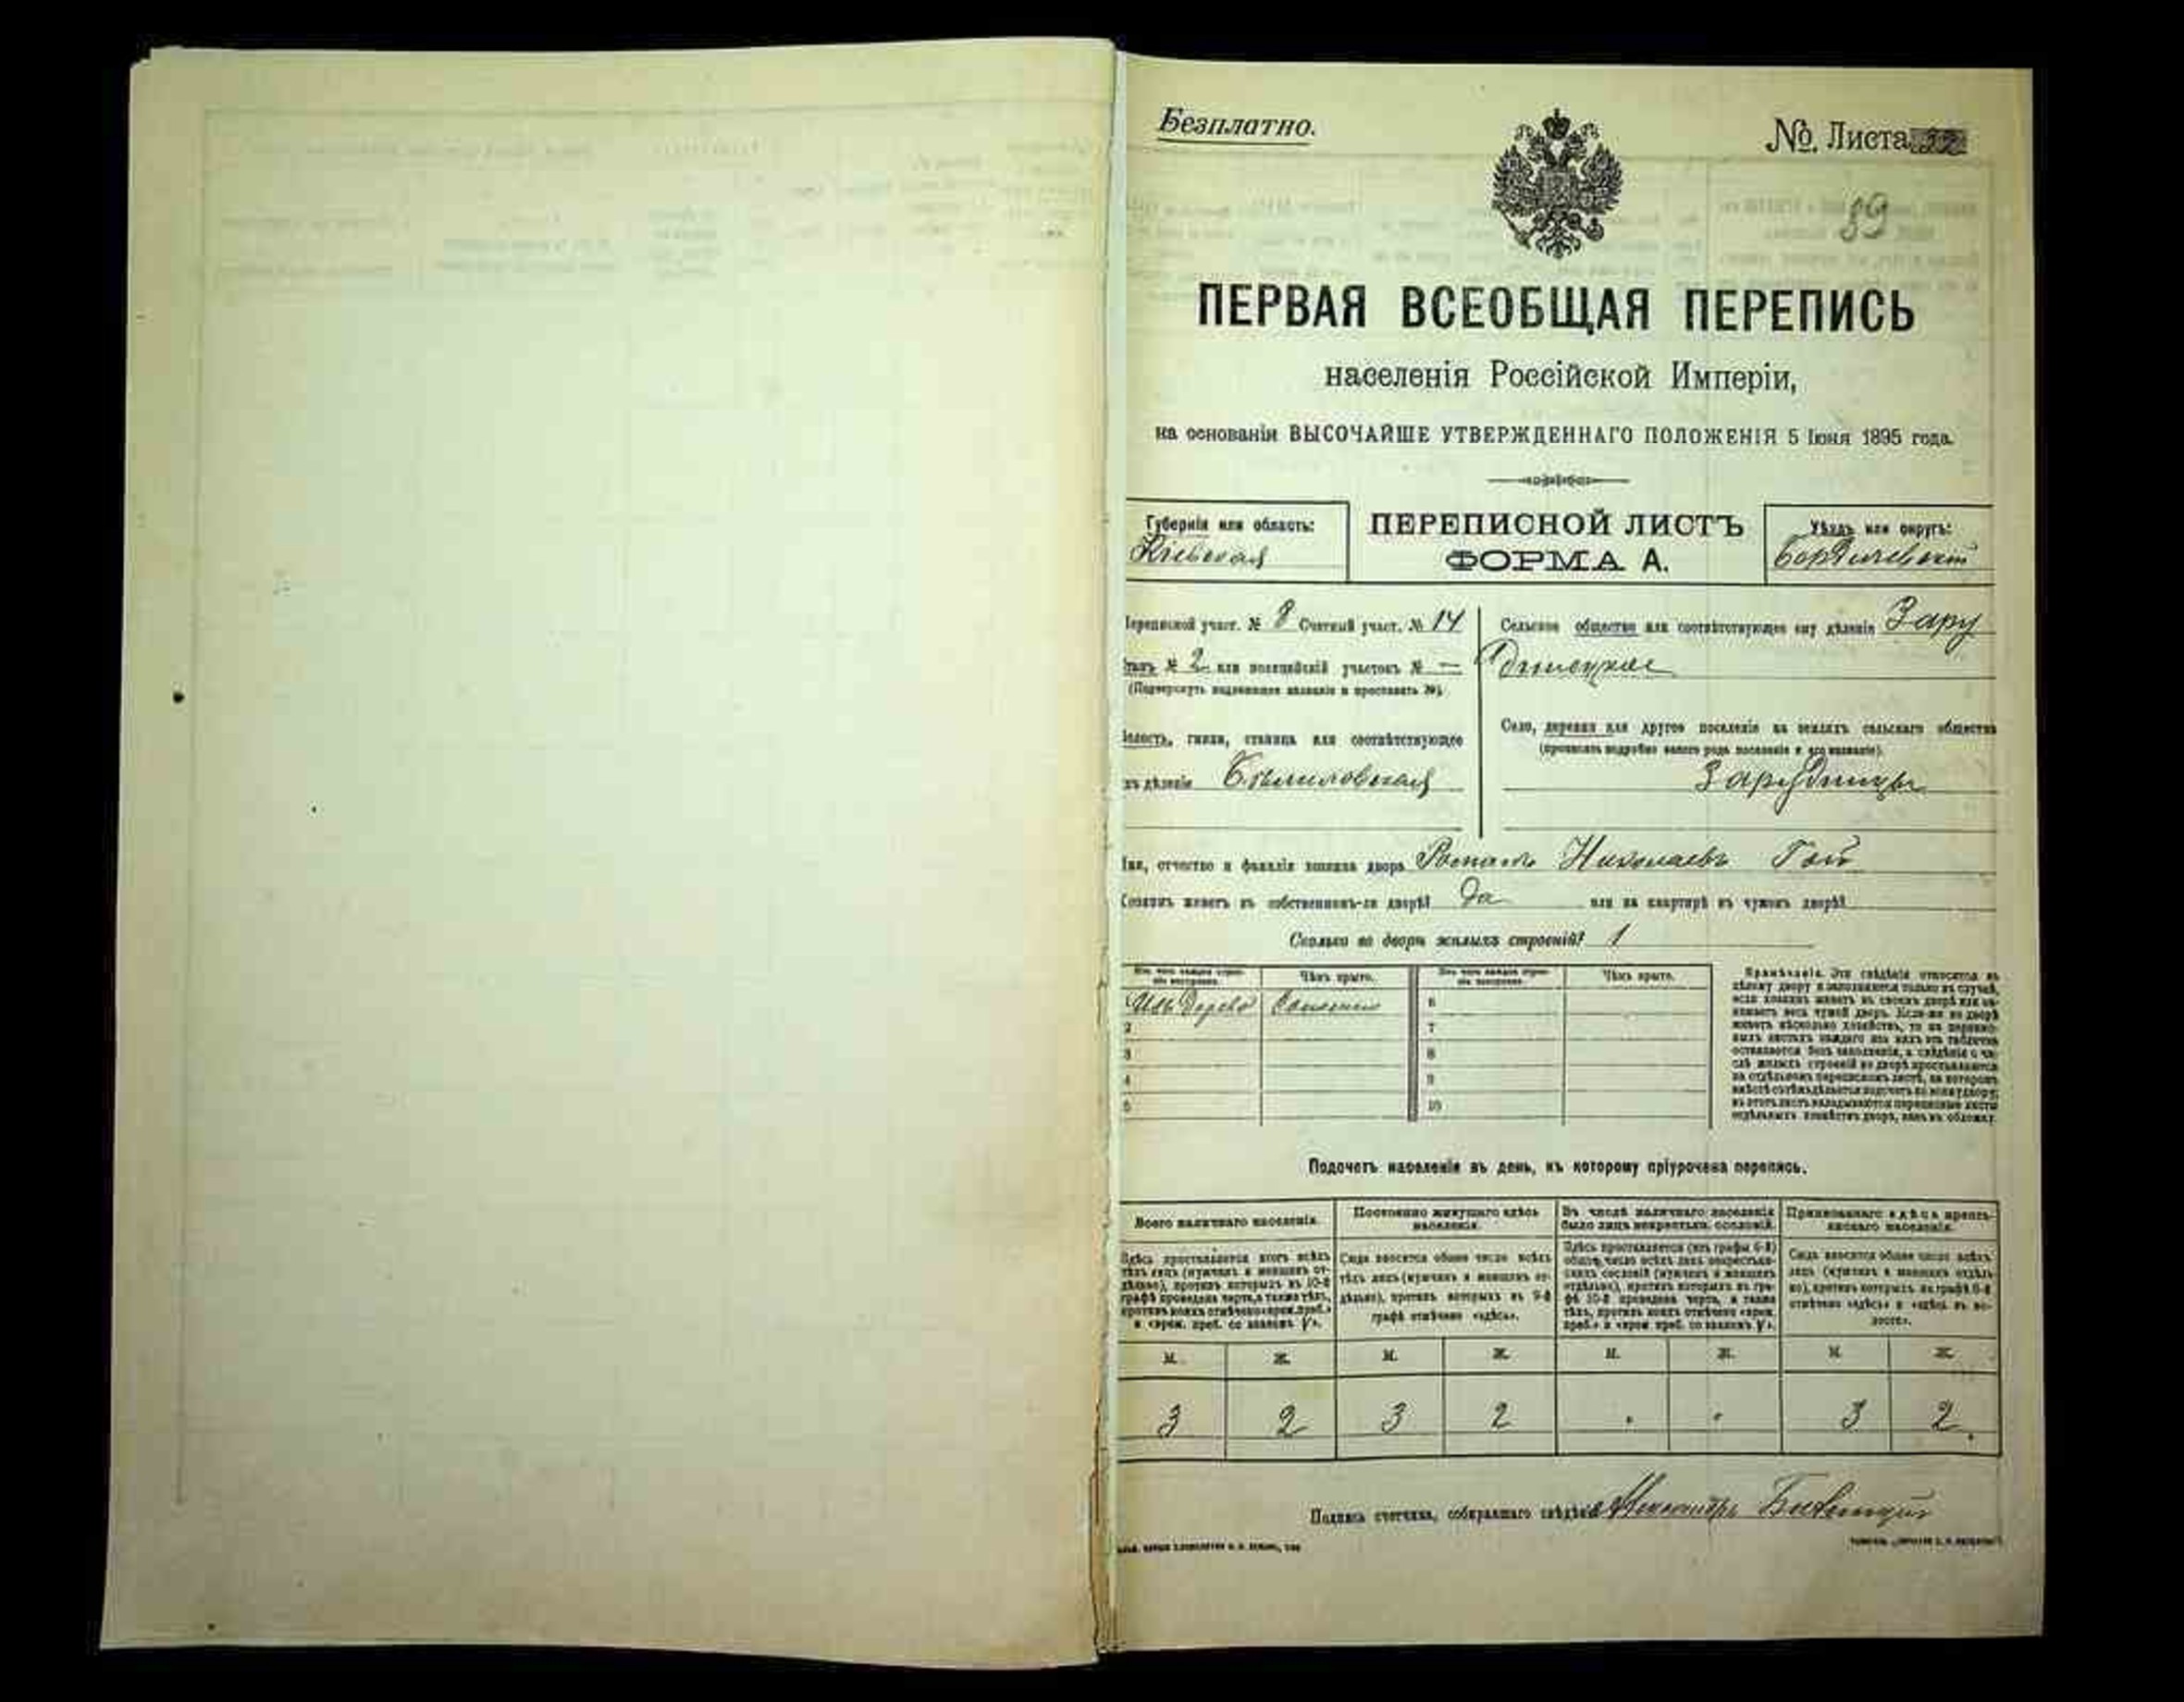 Безплатно.
№ Листа 32
89
ПЕРВАЯ ВСЕОБЩАЯ ПЕРЕПИСЬ
населенія Россійской Имперіи,
на основаніи ВЫСОЧАЙШЕ УТВЕРЖДЕННАГО ПОЛОЖЕНІЯ 5 Іюня 1895 года.
Губернія или область:
Кіевская
ПЕРЕПИСНОЙ ЛИСТЪ
ФОРМА А.
Уѣздъ или округъ:
Бердичевскій
Переписной участ. № 8 Счетный участ. № 14
Станъ № 2 или полицейскій участокъ № —
(Подчеркнуть надлежащее названіе и проставить №).
Волость, гмина, станица или соотвѣтствующее
дѣленіе
Сельское общество или соотвѣтствующее ему дѣленіе Зару
динецкое
Село, деревня или другое поселеніе на земляхъ сельскаго общества
(прописать подробно какого рода поселеніе и его названіе).
Зарудинцы
Имя, отчество и фамилія хозяина двора Романъ Николаевъ Гой
Хозяинъ живетъ въ собственномъ-ли дворѣ? да или на квартирѣ въ чужомъ дворѣ?
Сколько во дворѣ жилыхъ строеній? 1
Изъ чего каждое строеніе построено. Чѣмъ крыто. Изъ чего каждое строеніе построено. Чѣмъ крыто.
Изъ дерева Соломою 6
2 7
3 8
4 9
5 10
Примѣчаніе. Эти свѣдѣнія относятся къ
цѣлому двору и заполняются только въ случаѣ,
если хозяинъ живетъ въ своемъ дворѣ или за-
нимаетъ весь чужой дворъ. Если-же во дворѣ
живетъ нѣсколько хозяйствъ, то на перепис-
ныхъ листахъ каждаго изъ нихъ эта табличка
оставляется безъ заполненія, а свѣдѣнія о чи-
слѣ жилыхъ строеній во дворѣ проставляются
на отдѣльномъ переписномъ листѣ, на которомъ
вмѣстѣ съ тѣмъ дѣлается подсчетъ по всему двору;
въ этотъ листъ вкладываются переписные листы
отдѣльныхъ хозяйствъ двора, какъ въ обложку.
Подсчетъ населенія въ день, къ которому пріурочена перепись.
Всего наличнаго населенія.
Здѣсь проставляется итогъ всѣхъ
тѣхъ лицъ (мужчинъ и женщинъ от-
дѣльно), противъ которыхъ въ 10-й
графѣ проведена черта, а также тѣхъ,
противъ коихъ отмѣчено «врем. преб.»
и «врем. преб. со знакомъ V».
Постоянно живущаго здѣсь
населенія.
Сюда вносится общее число всѣхъ
тѣхъ лицъ (мужчинъ и женщинъ от-
дѣльно), противъ которыхъ въ 9-й
графѣ отмѣчено «здѣсь».
Въ числѣ наличнаго населенія
было лицъ некрестьян. сословій.
Здѣсь проставляется (изъ графы 6-й)
общее число всѣхъ лицъ некрестьян-
скихъ сословій (мужчинъ и женщинъ
отдѣльно), противъ которыхъ въ гра-
фѣ 10-й проведена черта, а также
тѣхъ, противъ коихъ отмѣчено «врем.
преб.» и «врем. преб. со знакомъ V».
Приписаннаго здѣсь кресть-
янскаго населенія.
Сюда вносится общее число всѣхъ
лицъ (мужчинъ и женщинъ отдѣль-
но), противъ которыхъ въ графѣ 8-й
отмѣчено «здѣсь» и «здѣсь въ во-
лости».
М. Ж. М. Ж. М. Ж. М. Ж.
3 2 3 2 3 2
Подпись счетчика, собиравшаго свѣдѣнія Александръ